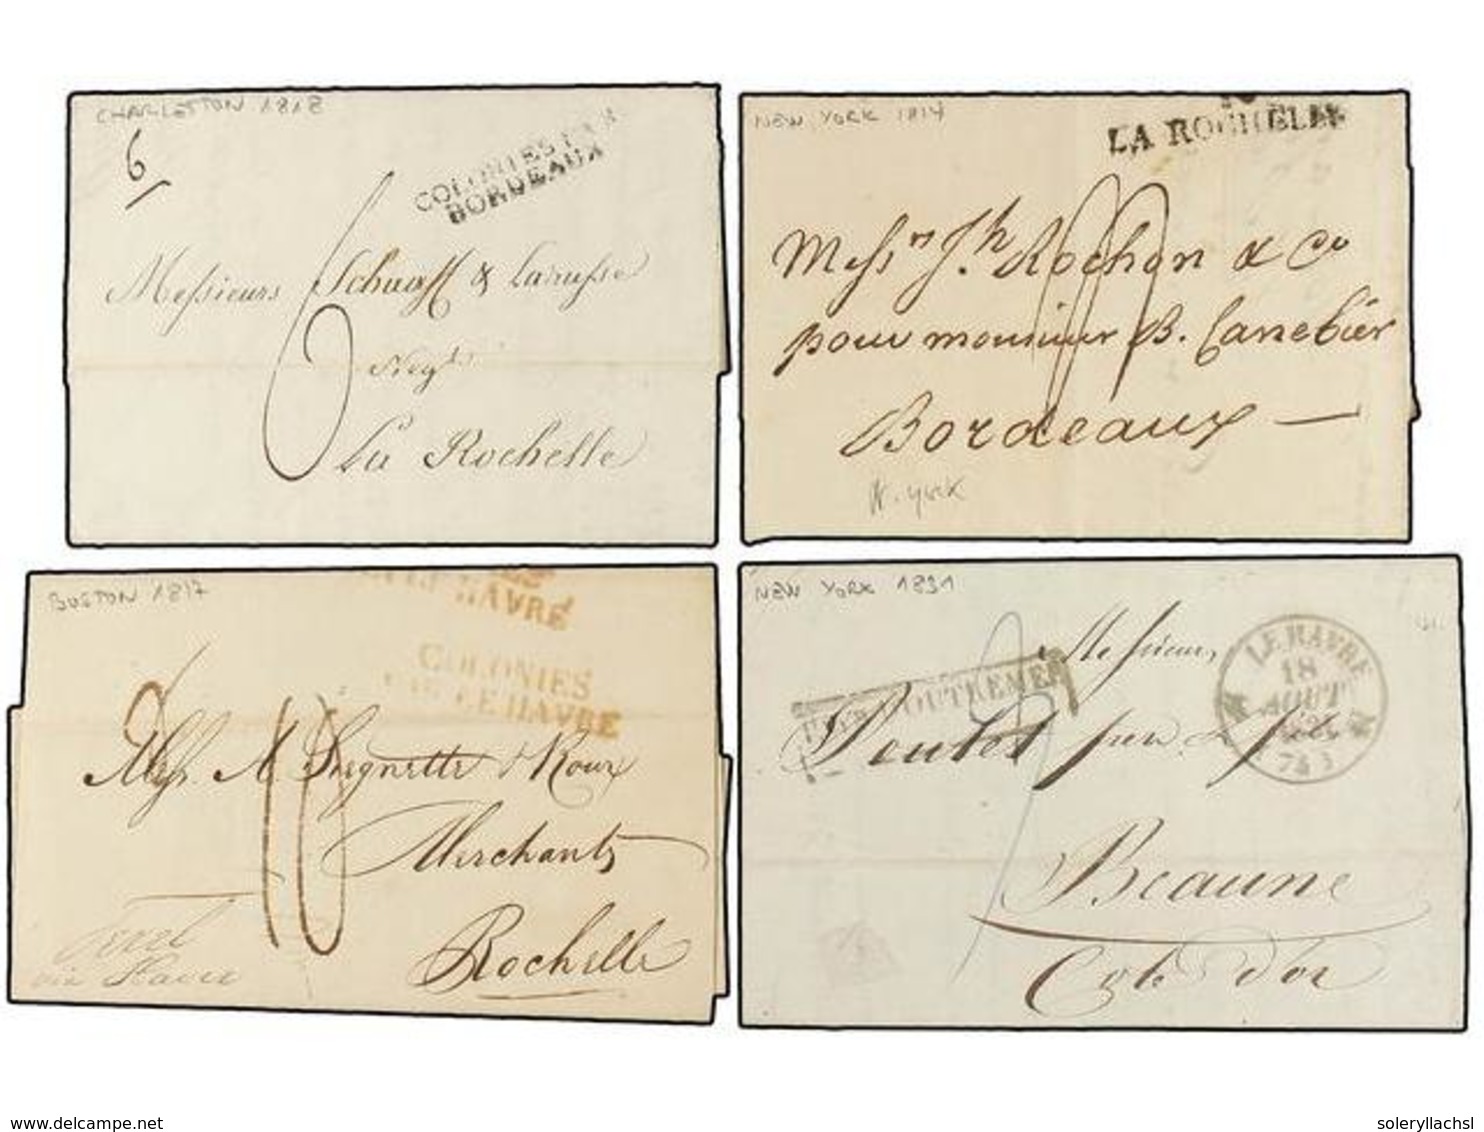 CHARLESTON 1818
6
COLONIES PAR
BORDEAUX
Messieurs Schwaff & Larusse
Negts
La Rochelle
NEW YORK 1814
LA ROCHELLE
Messrs Jh. Rochon & Co
pour monsieur B. Carrebier
Bordeaux
N. York
BOSTON 1817
LE HAVRE
COLONIES
PAR LE HAVRE
Messr. M. Seignette & Roux
Merchants
Rochelle
via Havre
NEW YORK 1831
LE HAVRE
18
AOUT
PAYS D'OUTREMER
Messieurs
Poulet pere & fils
Beaune
Cote d'or
delcampe.net
soleryllachsl